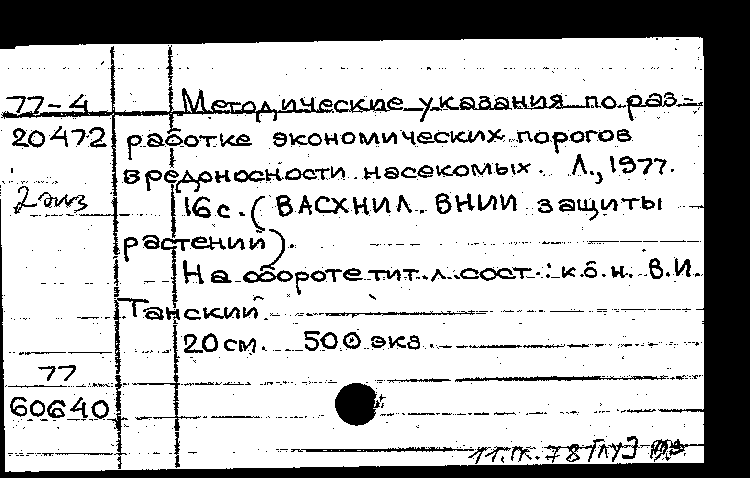 77-4 Методические указания по раз-
20472 работке экономических порогов
вредоносности насекомых. Л., 1977.
2 экз 16 с. (ВАСХНИЛ. ВНИИ защиты
растений).
На обороте тит. л. сост.: к.б.н. В.И.
Танский.
20 см. 500 экз.
77
60640
11.IX.78